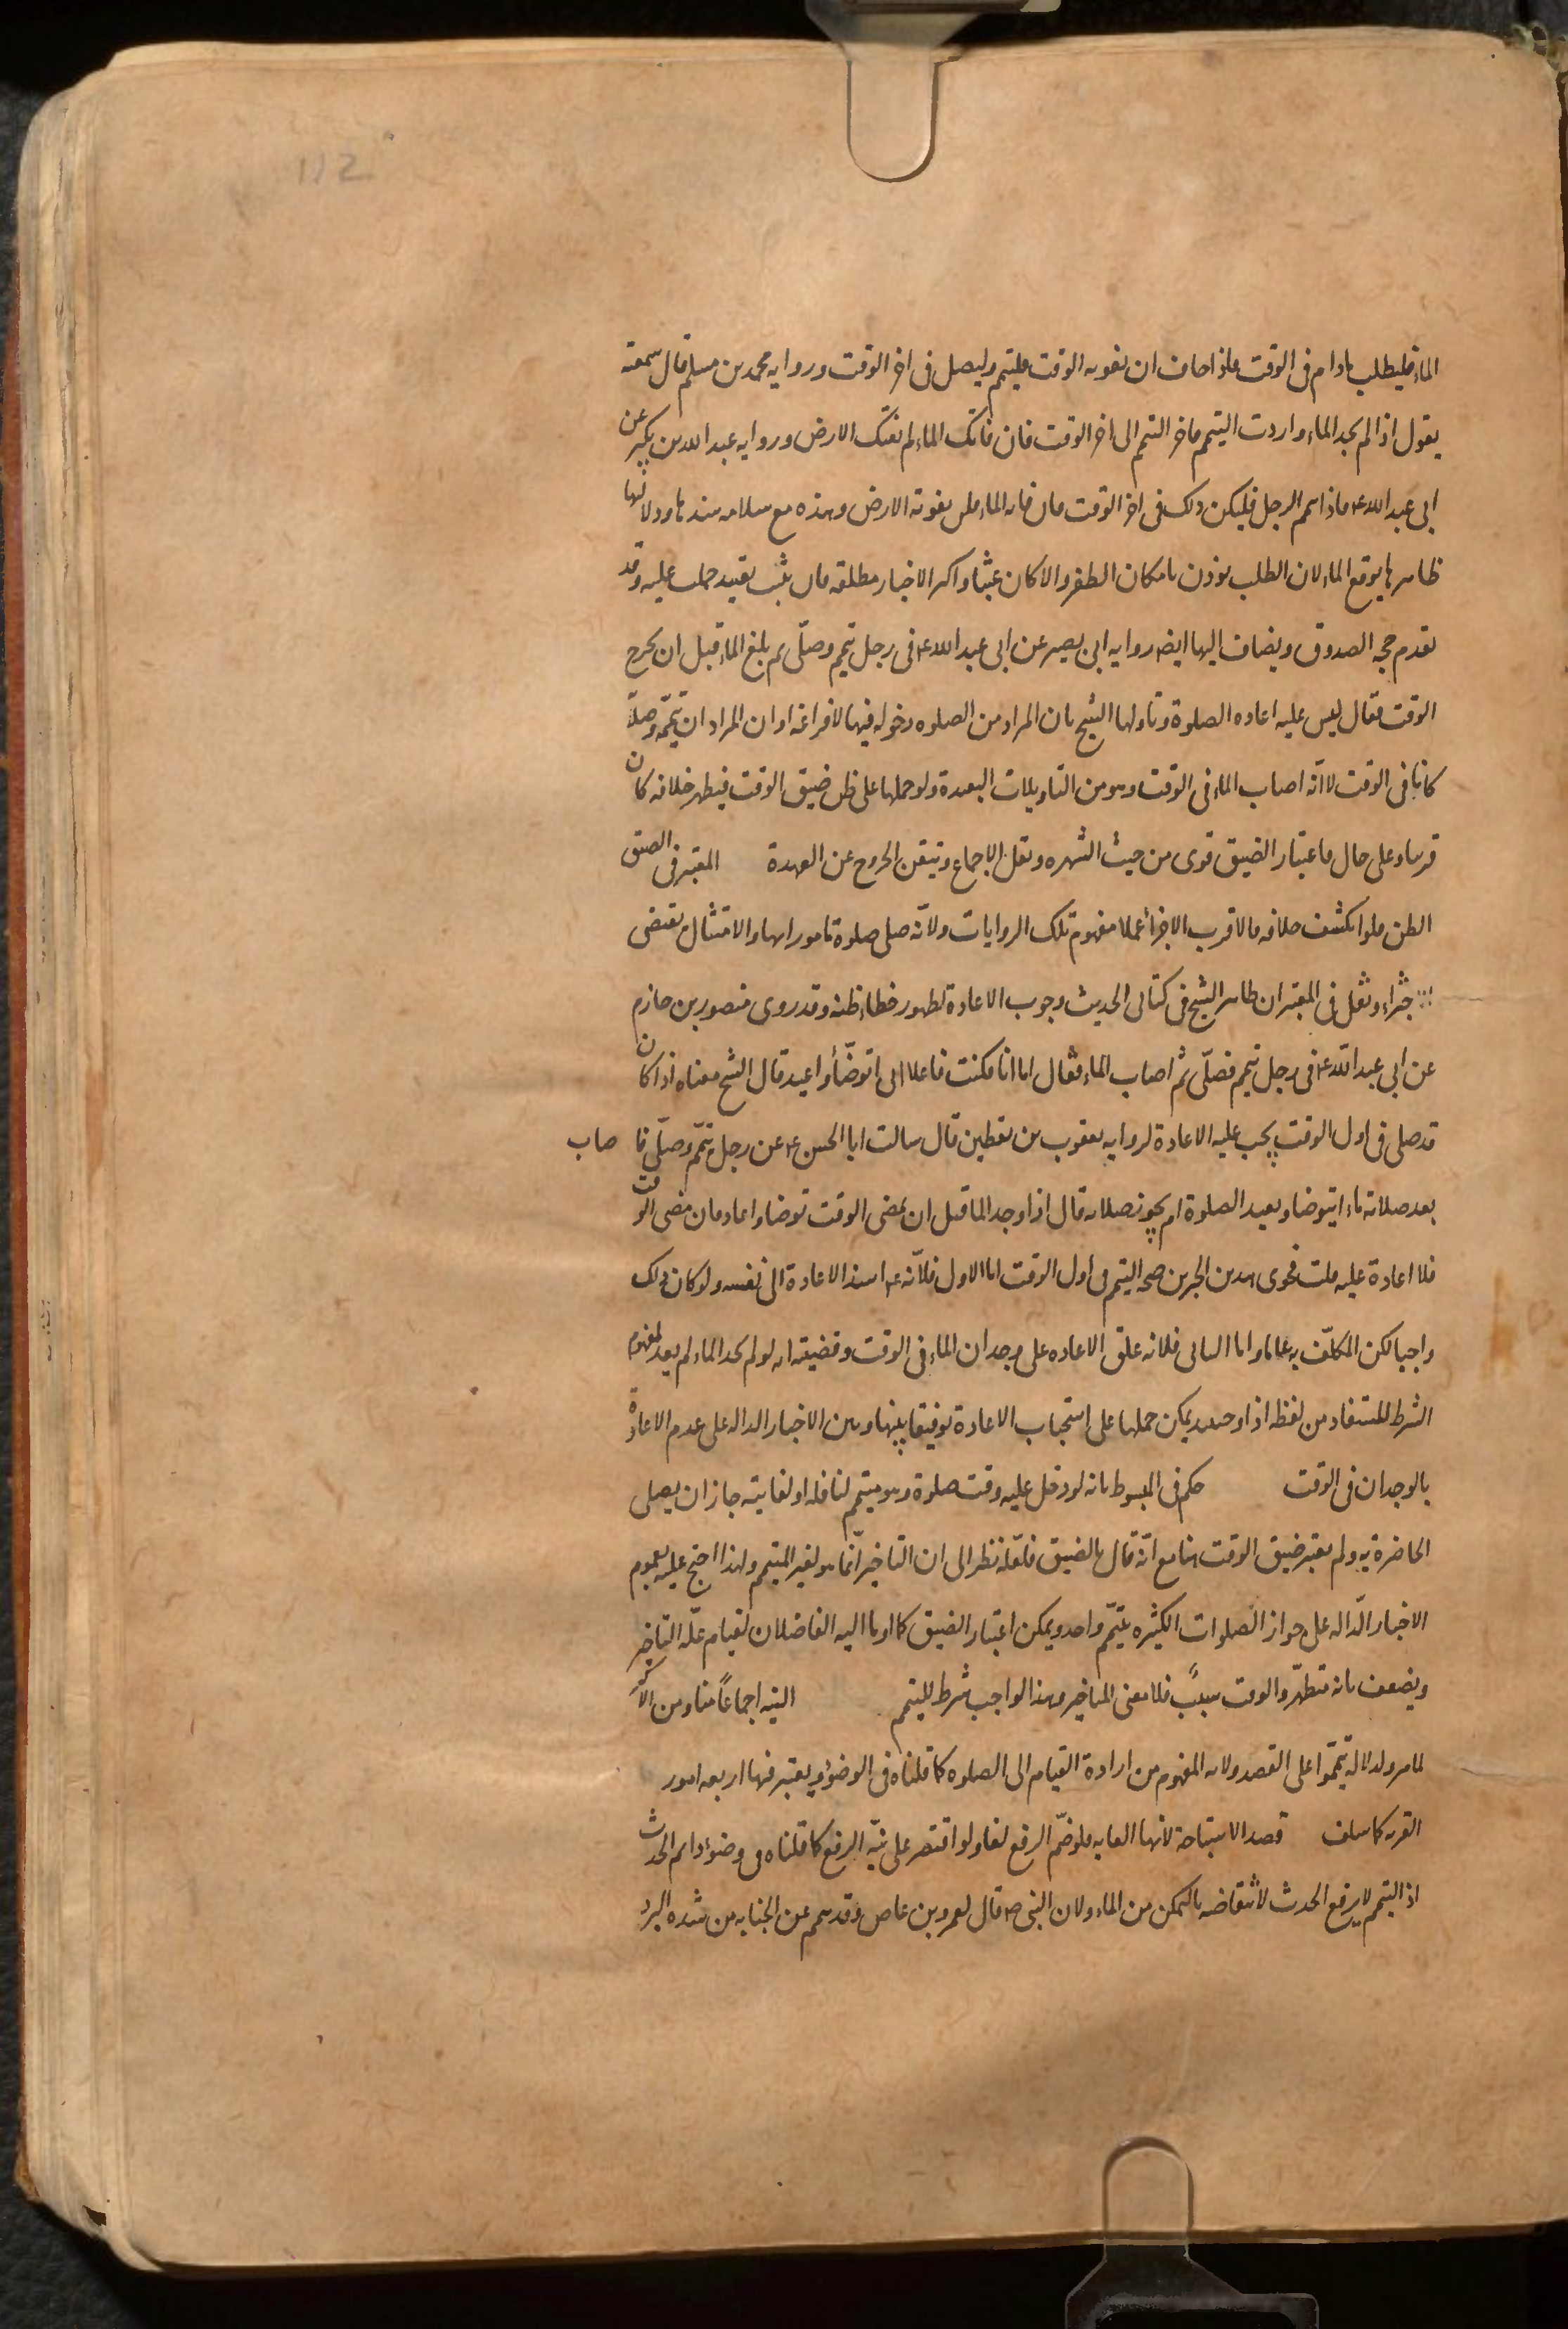 112
الماء فليطلب مادام فى الوقت فاذا خاف ان يفوته الوقت فليتيمم وليصل فى اخر الوقت ورواية محمد بن مسلم قال سمعته
يقول اذا لم تجد الماء واردت التيمم فاخر التيمم الى اخر الوقت فان فاتك الماء لم تفتك الارض ورواية عبد الله بن بكير عن
ابى عبد الله ع فاذا تيمم الرجل فليكن ذلك فى اخر الوقت فان فاته الماء فلن يفوته الارض وهذه مع سلامه سندها ودلالتها
ظاهرها توقع الماء لان الطلب يوذن بامكان الظفر والا كان عبثا واكثر الاخبار مطلقه فان ثبت تقييد حملت عليه وقد
تقدم حجة الصدوق ويضاف اليها ايضا رواية ابى بصير عن ابى عبد الله ع فى رجل تيمم وصلّى ثم بلغ الماء قبل ان يخرج
الوقت فقال ليس عليه اعاده الصلوة وتاولها الشيخ بان المراد من الصلوه دخوله فيها لا فراغه او ان المراد ان تيممه وصلاته
كانا فى الوقت لا انّه اصاب الماء فى الوقت وهو من التاويلات البعيدة ولو حملها على ظن ضيق الوقت فيظهر خلافه كان
قريبا وعلى حال فاعتبار الضيق قوى من حيث الشهره ونقل الاجماع وتيقن الخروج عن العهدة المعتبر فى الضيق
الظن فلو انكشف خلافه فالاقرب الاجزاء عملا بمفهوم تلك الروايات ولانّه صلى صلوة مامورا بها والامتثال يقتضى
الاجزاء ونقل فى المعتبر ان ظاهر الشيخ فى كتابى الحديث وجوب الاعادة لظهور خطاء ظنه وقد روى منصور بن حازم
عن ابى عبد الله ع فى رجل تيمم فصلّى ثم اصاب الماء فقال اما انا فكنت فاعلا انى اتوضّأ واعيد قال الشيخ معناه اذا كان
قد صلى فى اول الوقت يجب عليه الاعادة لرواية يعقوب بن يقطين قال سالت ابا الحسن ع عن رجل تيمّم وصلّى فا صاب
بعد صلاته ماء ايتوضا ويعيد الصلوة ام يجوز صلاته قال اذا وجد الماء قبل ان يمضى الوقت توضا واعاد فان مضى الوقت
فلا اعادة عليه قلت فحوى هذين الخبرين صحه التيمم فى اول الوقت اما الاول فلانّه ع اسند الاعادة الى نفسه ولو كان ذلك
واجبا لكن المكلّف به عاما واما الثانى فلانه علق الاعاده على وجدان الماء فى الوقت وقضيته انه لو لم يجد الماء لم يعد لمفهوم
الشرط المستفاد من لفظه اذا وحينئذ يمكن حملها على استحباب الاعادة توفيقا بينها وبين الاخبار الداله على عدم الاعادة
بالوجدان فى الوقت حكم فى المبسوط بانه لو دخل عليه وقت صلوة وهو متيمم لنافله او لفايته جاز ان يصلى
الحاضرة به ولم يعتبر ضيق الوقت هنا مع انّه قال بالضيق فلعلّه نظر الى ان التاخير انّما هو لغير المتيمم ولهذا احتج عليه بعموم
الاخبار الدّاله على جواز الصّلوات الكثيره بتيمّم واحد ويمكن اعتبار الضيق كما اوما اليه الفاضلان لقيام علّه التاخير
ويضعف بانه متطهّر والوقت سبب فلا معنى للتاخير وهذا الواجب شرط للتيمم النية اجماعًا منا ومن الاكثر
لما مر ولدلالة تيمّموا على القصد ولانه المفهوم من ارادة القيام الى الصلوه كما قلناه فى الوضوء ويعتبر فيها اربعه امور
القربه كما سلف قصد الاستباحة لانها الغايه فلو ضمّ الرفع لغا ولو اقتصر على نيّه الرفع كما قلناه فى وضوء دايم الحدث
اذ التيمم لا يرفع الحدث لانتقاضه بالتمكن من الماء ولان النبى ص قال لعمرو بن عاص وقد تيمم عن الجنابه من شده البرد